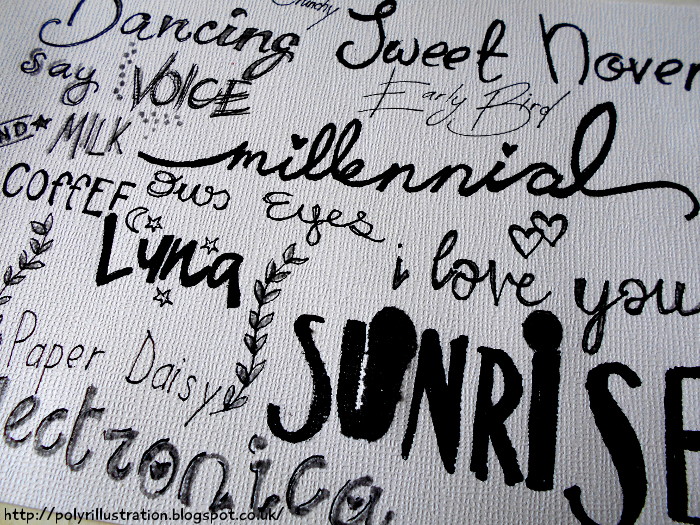 Crunchy
Dancing Sweet Novem
say VOICE Early Bird
ND MILK millennial
COFFEE Our Eyes
Luna i love you
Paper Daisy SUNRISE
lectronica
http://polyrillustration.blogspot.co.uk/